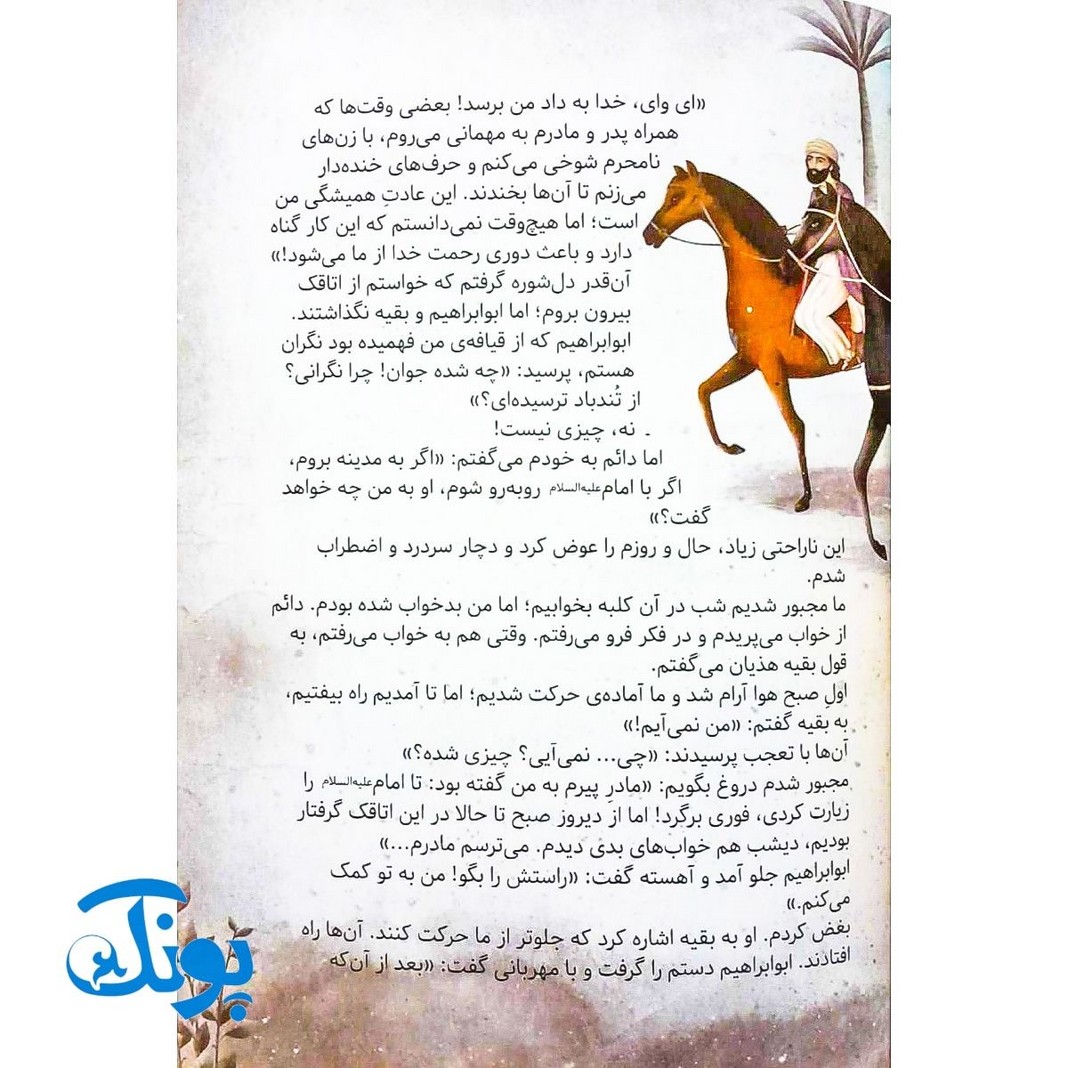 «ای وای، خدا به داد من برسد! بعضی وقت‌ها که
همراه پدر و مادرم به مهمانی می‌روم، با زن‌های
نامحرم شوخی می‌کنم و حرف‌های خنده‌دار
می‌زنم تا آن‌ها بخندند. این عادتِ همیشگی من
است؛ اما هیچ‌وقت نمی‌دانستم که این کار گناه
دارد و باعث دوری رحمت خدا از ما می‌شود!»
آن‌قدر دل‌شوره گرفتم که خواستم از اتاقک
بیرون بروم؛ اما ابوابراهیم و بقیه نگذاشتند.
ابوابراهیم که از قیافه‌ی من فهمیده بود نگران
هستم، پرسید: «چه شده جوان! چرا نگرانی؟
از تُندباد ترسیده‌ای؟»
ـ نه، چیزی نیست!
اما دائم به خودم می‌گفتم: «اگر به مدینه بروم،
اگر با امام علیه‌السلام روبه‌رو شوم، او به من چه خواهد
گفت؟»
این ناراحتی زیاد، حال و روزم را عوض کرد و دچار سردرد و اضطراب
شدم.
ما مجبور شدیم شب در آن کلبه بخوابیم؛ اما من بدخواب شده بودم. دائم
از خواب می‌پریدم و در فکر فرو می‌رفتم. وقتی هم به خواب می‌رفتم، به
قول بقیه هذیان می‌گفتم.
اولِ صبح هوا آرام شد و ما آماده‌ی حرکت شدیم؛ اما تا آمدیم راه بیفتیم،
به بقیه گفتم: «من نمی‌آیم!»
آن‌ها با تعجب پرسیدند: «چی... نمی‌آیی؟ چیزی شده؟»
مجبور شدم دروغ بگویم: «مادرِ پیرم به من گفته بود: تا امام علیه‌السلام را
زیارت کردی، فوری برگرد! اما از دیروز صبح تا حالا در این اتاقک گرفتار
بودیم، دیشب هم خواب‌های بدی دیدم. می‌ترسم مادرم...»
ابوابراهیم جلو آمد و آهسته گفت: «راستش را بگو! من به تو کمک
می‌کنم.»
بغض کردم. او به بقیه اشاره کرد که جلوتر از ما حرکت کنند. آن‌ها راه
افتادند. ابوابراهیم دستم را گرفت و با مهربانی گفت: «بعد از آن‌که
پونک